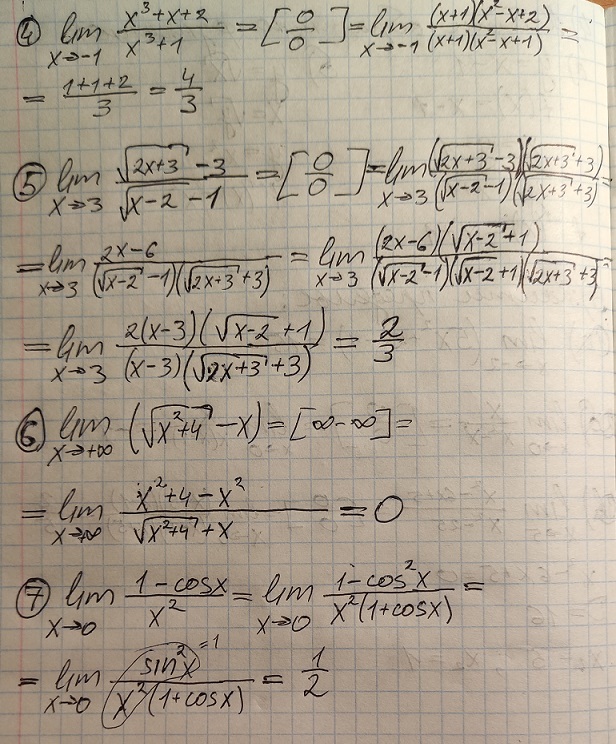 ④ lim x→-1 (x³+x+2)/(x³+1) = [0/0] = lim x→-1 ((x+1)(x²-x+2))/((x+1)(x²-x+1)) =
= (1+1+2)/3 = 4/3
⑤ lim x→3 (√(2x+3) -3)/(√(x-2) -1) = [0/0] = lim x→3 ((√(2x+3) -3)(√(2x+3) +3))/((√(x-2) -1)(√(2x+3) +3)) =
= lim x→3 (2x-6)/((√(x-2) -1)(√(2x+3) +3)) = lim x→3 ((2x-6)(√(x-2) +1))/((√(x-2) -1)(√(x-2) +1)(√(2x+3) +3))
= lim x→3 (2(x-3)(√(x-2) +1))/((x-3)(√(2x+3) +3)) = 2/3
⑥ lim x→+∞ (√(x²+4) -x) = [∞-∞] =
= lim x→+∞ (x²+4-x²)/(√(x²+4) +x) = 0
⑦ lim x→0 (1-cosx)/x² = lim x→0 (1-cos²x)/(x²(1+cosx)) =
= lim x→0 (sin²x)/(x²(1+cosx)) =1 = 1/2